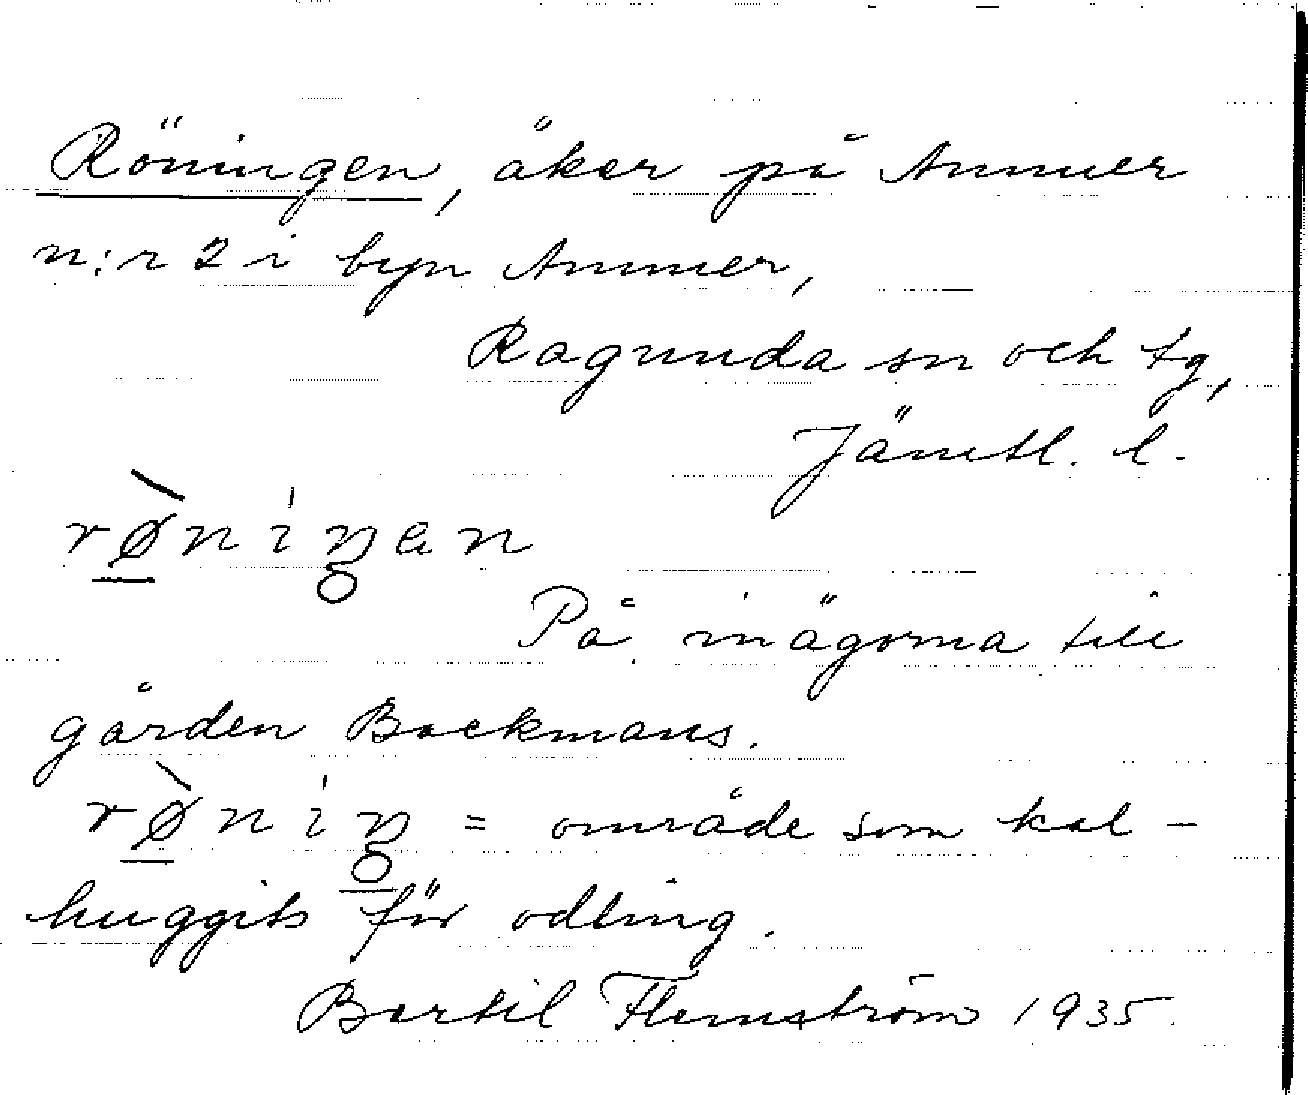 Röningen, åker på Ammer
n:r 2 i byn Ammer,
Ragunda sn och tg,
Jämtl. l.
rø̀niŋən
På inägorna till
gården Backmans.
rø̀niŋ = område som kal-
huggits för odling.
Bertil Flemström 1935.